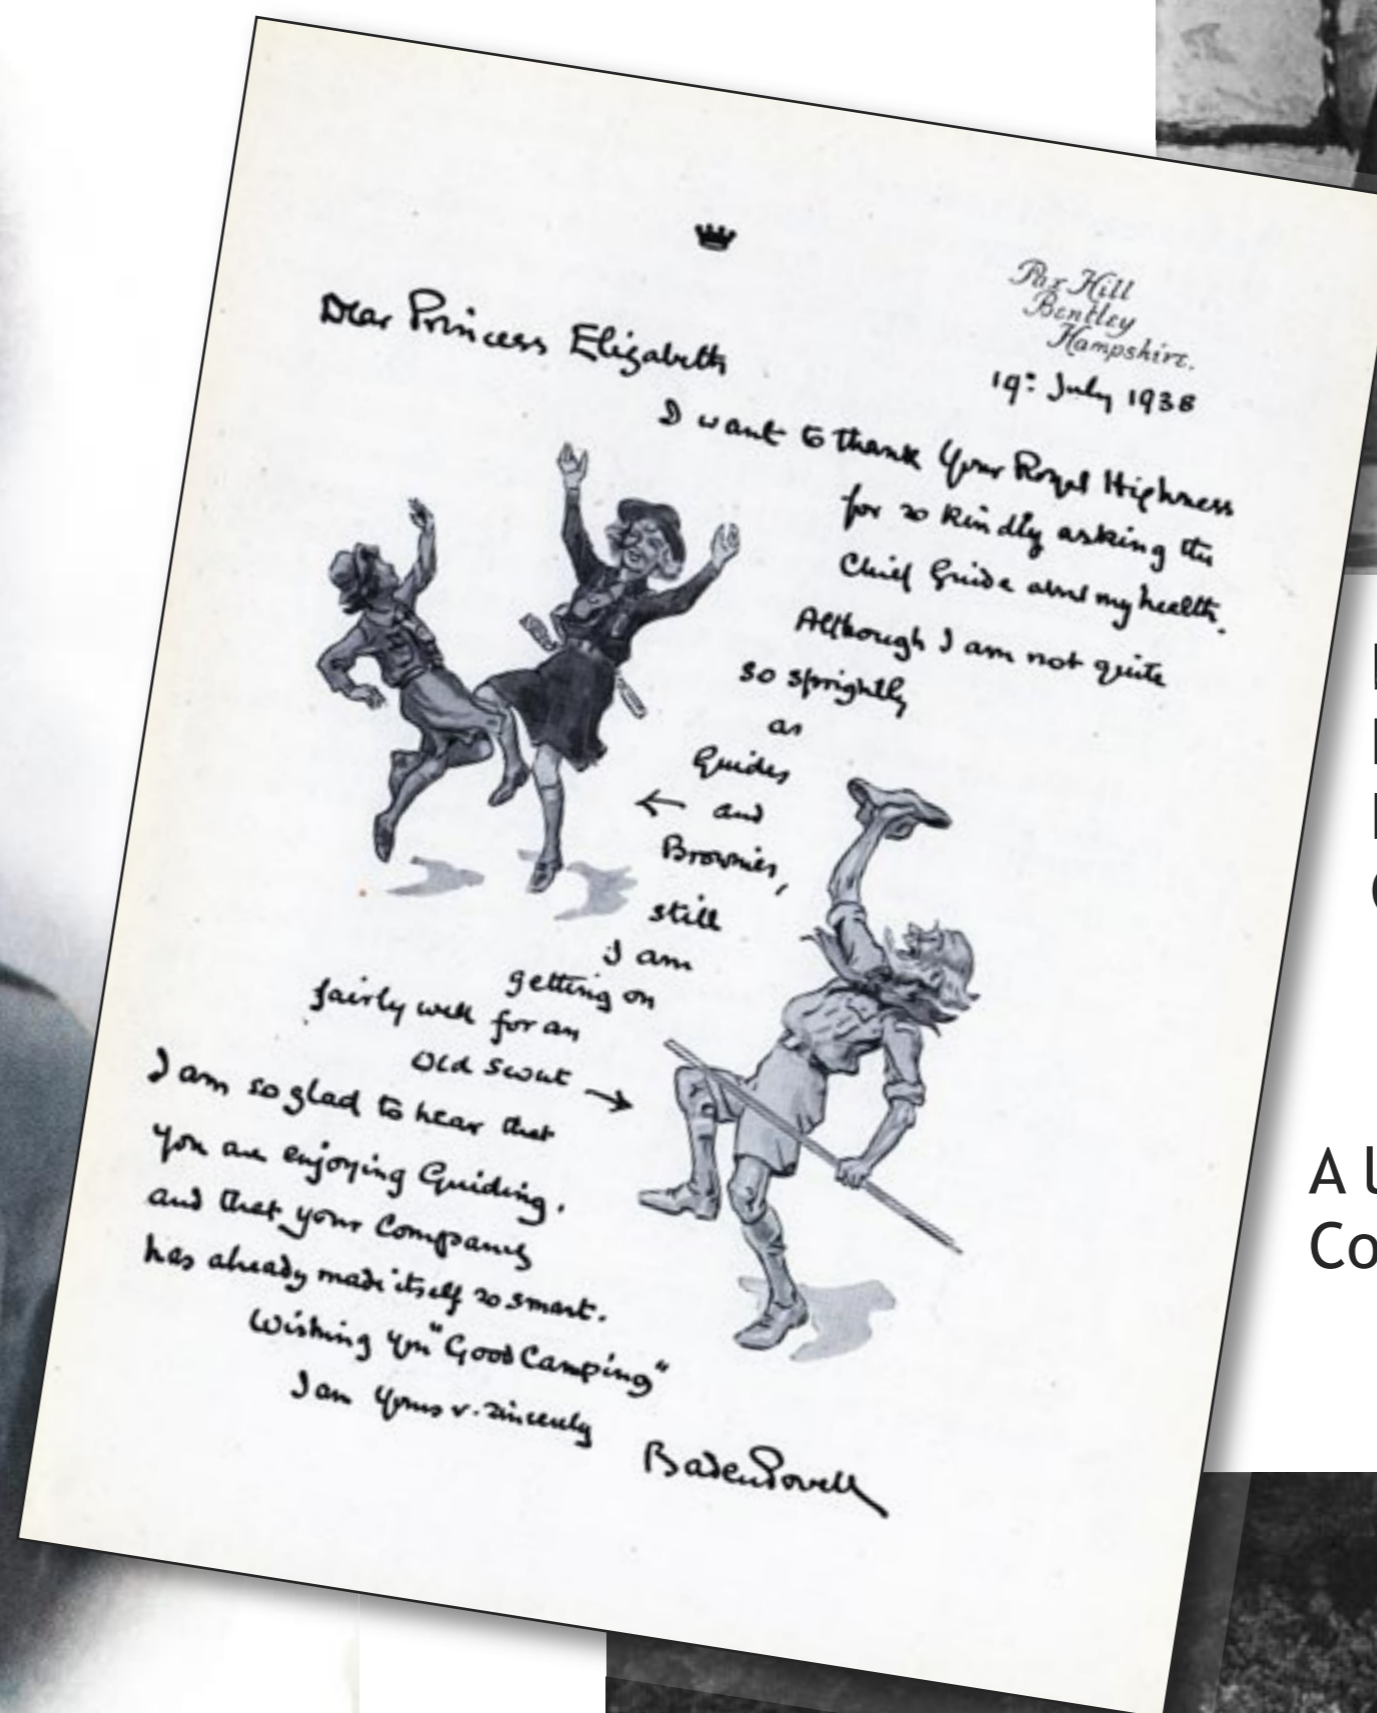 Pax Hill
Bentley
Hampshire.
19: July 1938
Dear Princess Elizabeth
I want to thank Your Royal Highness
for so kindly asking the
Chief Guide about my health.
Although I am not quite
so sprightly
as
Guides
← and
Brownies,
still
I am
getting on
fairly well for an
Old Scout →
I am so glad to hear that
you are enjoying Guiding.
and that your Company
has already made itself so smart.
Wishing you "Good Camping"
I am Yours v. sincerely
Baden Powell
A
Co